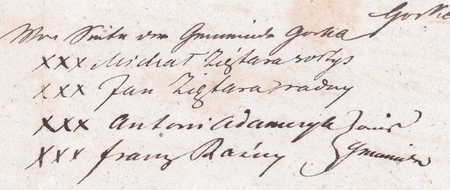 Gorki
Von Seite der Gemeinde Gorka
XXX Michał Ziętara sołtys
XXX Jan Ziętara radny
XXX Antoni Adamczyk
XXX Franz Raźny
Gmeinde